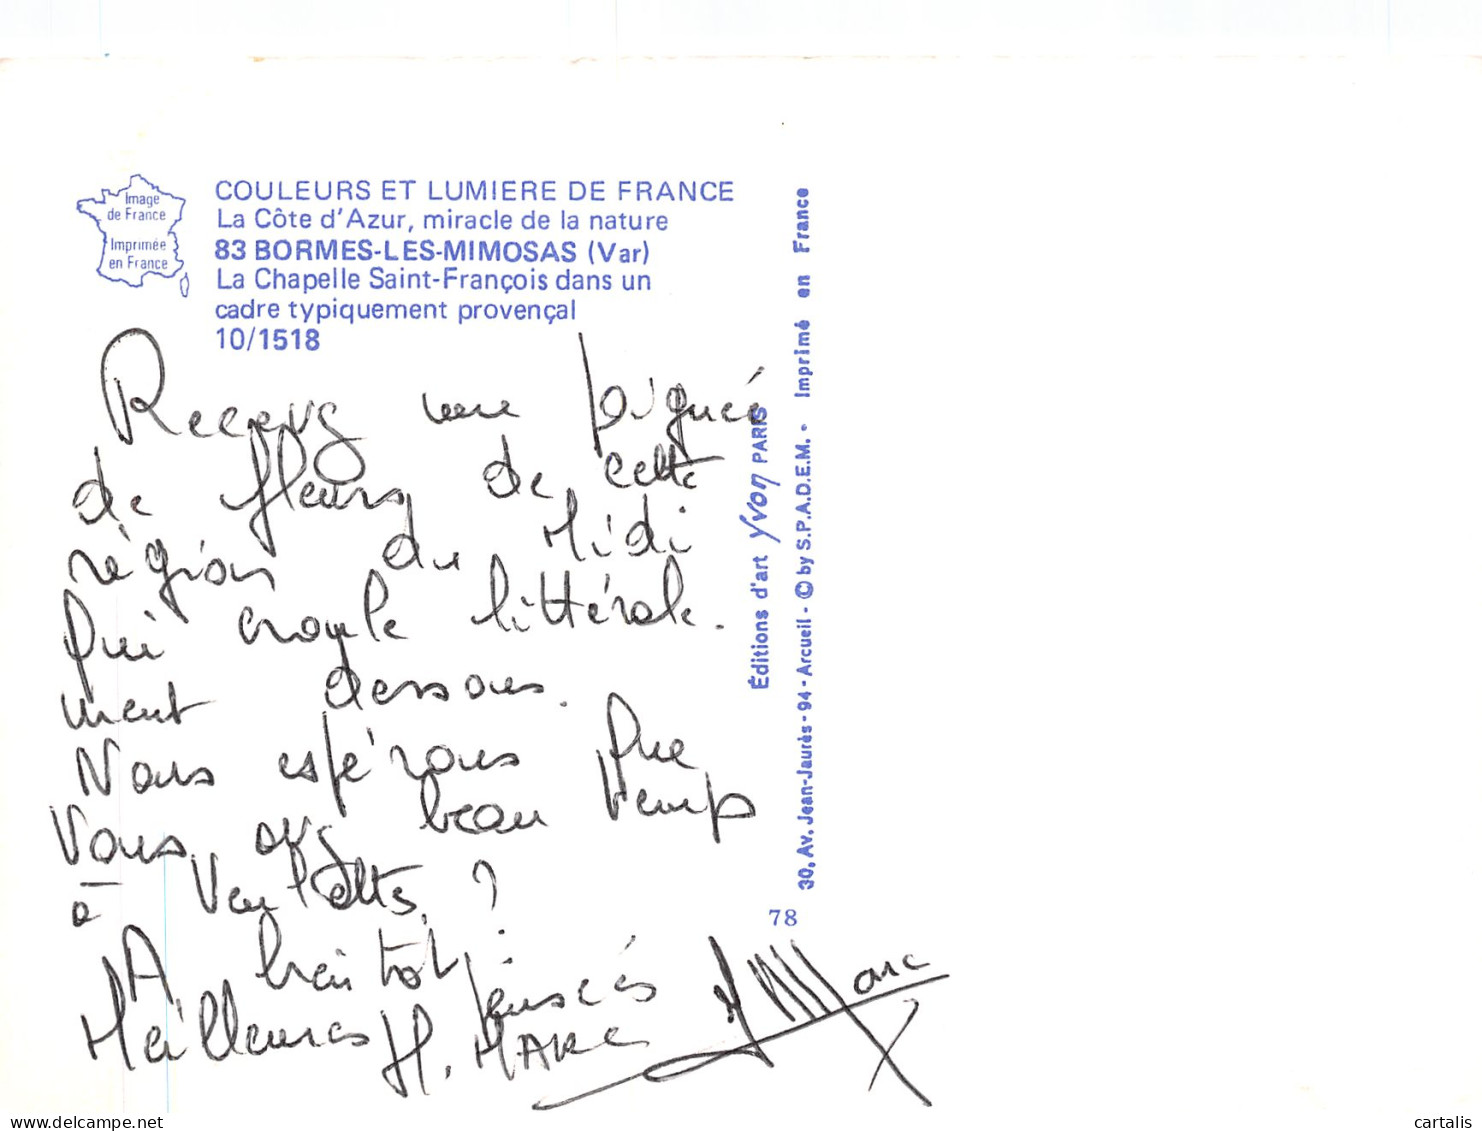 Image
de France
Imprimée
en France
COULEURS ET LUMIERE DE FRANCE
La Côte d'Azur, miracle de la nature
83 BORMES-LES-MIMOSAS (Var)
La Chapelle Saint-François dans un
cadre typiquement provençal
10/1518
Recevez une poignée
de fleurs de cette
région du Midi
qui croule littérale.
ment dessous.
Nous espérons que
Vous avez beau temps
à
A bientôt.
Meilleures pensées
H. MARC
Marc
Éditions d'art Yvon PARIS
30, Av. Jean-Jaurès - 94 - Arcueil - © by S.P.A.D.E.M. - Imprimé en France
78
cartalis.com